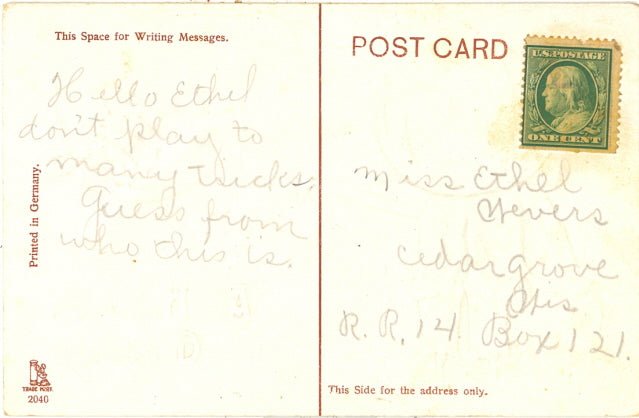 This Space for Writing Messages.
Hello Ethel
don't play to
many tricks.
Guess from
who this is.
Printed in Germany.
TRADE MARK
2040
POST CARD
U.S. POSTAGE
ONE CENT
Miss Ethel
Wevers
Cedargrove
Wis
R. R. 14 Box 121.
This Side for the address only.